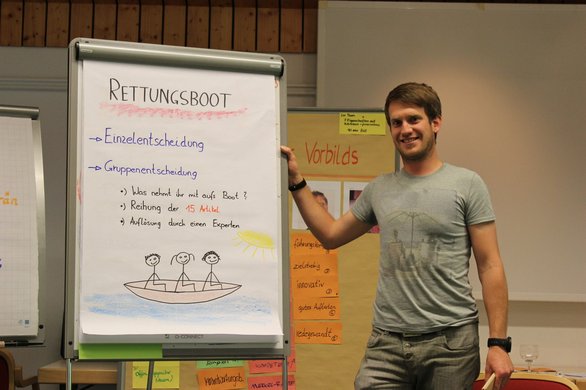 RETTUNGSBOOT
Einzelentscheidung
Gruppenentscheidung
Was nehmt ihr mit aufs Boot?
Reihung der 15 Artikel
Auflösung durch einen Experten
Vorbilds
zielstrebig
innovativ
gutes Auftreten
redegewandt